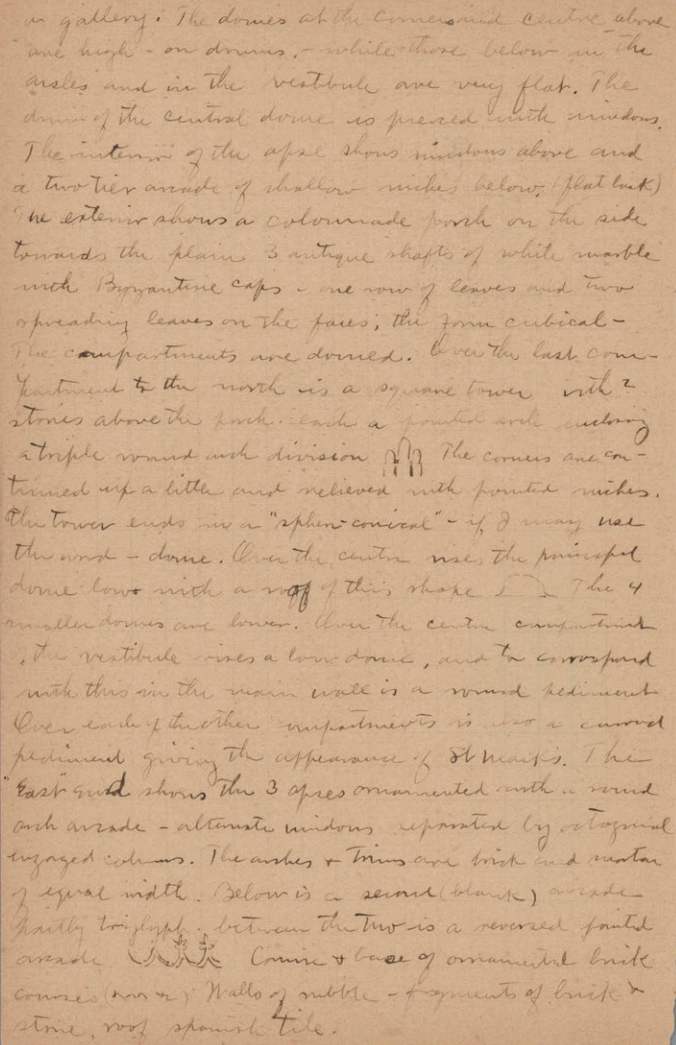 or gallery. The domes at the corners and centre above
are high - on drums, - while those below in the
aisles and in the vestibule are very flat. The
drum of the central dome is pierced with windows.
The interior of the apse shows windows above and
a two tier arcade of shallow niches below. (flat back)
The exterior shows a colonnade porch on the side
towards the plain 3 antique shafts of white marble
with Byzantine caps - one row of leaves and two
spreading leaves on the faces; the form cubical -
The compartments are domed. Over the last com-
partment to the north is a square tower with 2
stories above the porch. each a pointed arch enclosing
a triple round arch division The corners are con-
tinued up a little and relieved with pointed niches.
The tower ends in a "sphero-conical" - if I may use
the word - dome. Over the centre rises the principal
dome low with a roof of this shape The 4
smaller domes are lower. Over the centre compartment
of the vestibule rises a low dome, and to correspond
with this in the main wall is a round pediment
Over each of the other compartments is also a curved
pediment giving the appearance of St Mark's. The
East end shows the 3 apses ornamented with a round
arch arcade - alternate windows separated by octagonal
engaged columns. The arches + trims are brick and mortar
of equal width. Below is a second (blank) arcade
partly triglyph. between the two is a reversed pointed
arcade Cornice + base of ornamental brick
courses Walls of rubble - fragments of brick +
stone, roof spanish tile.
4